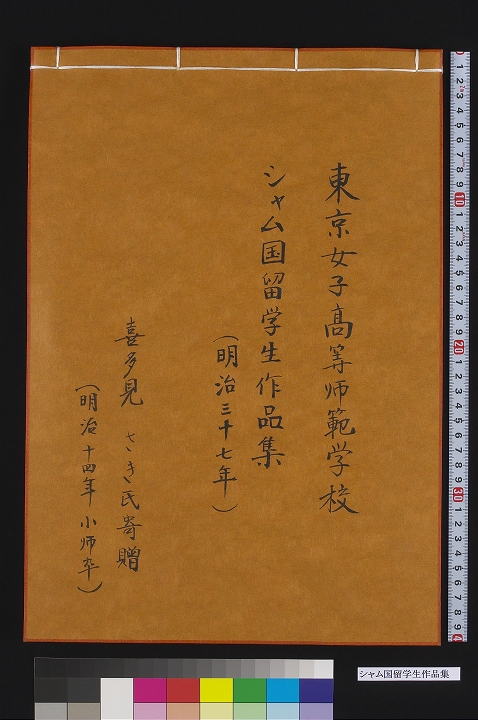 東京女子高等師範学校
シャム国留学生作品集
(明治三十七年)
喜多見 さき氏寄贈
(明治十四年小師卒)
シャム国留学生作品集